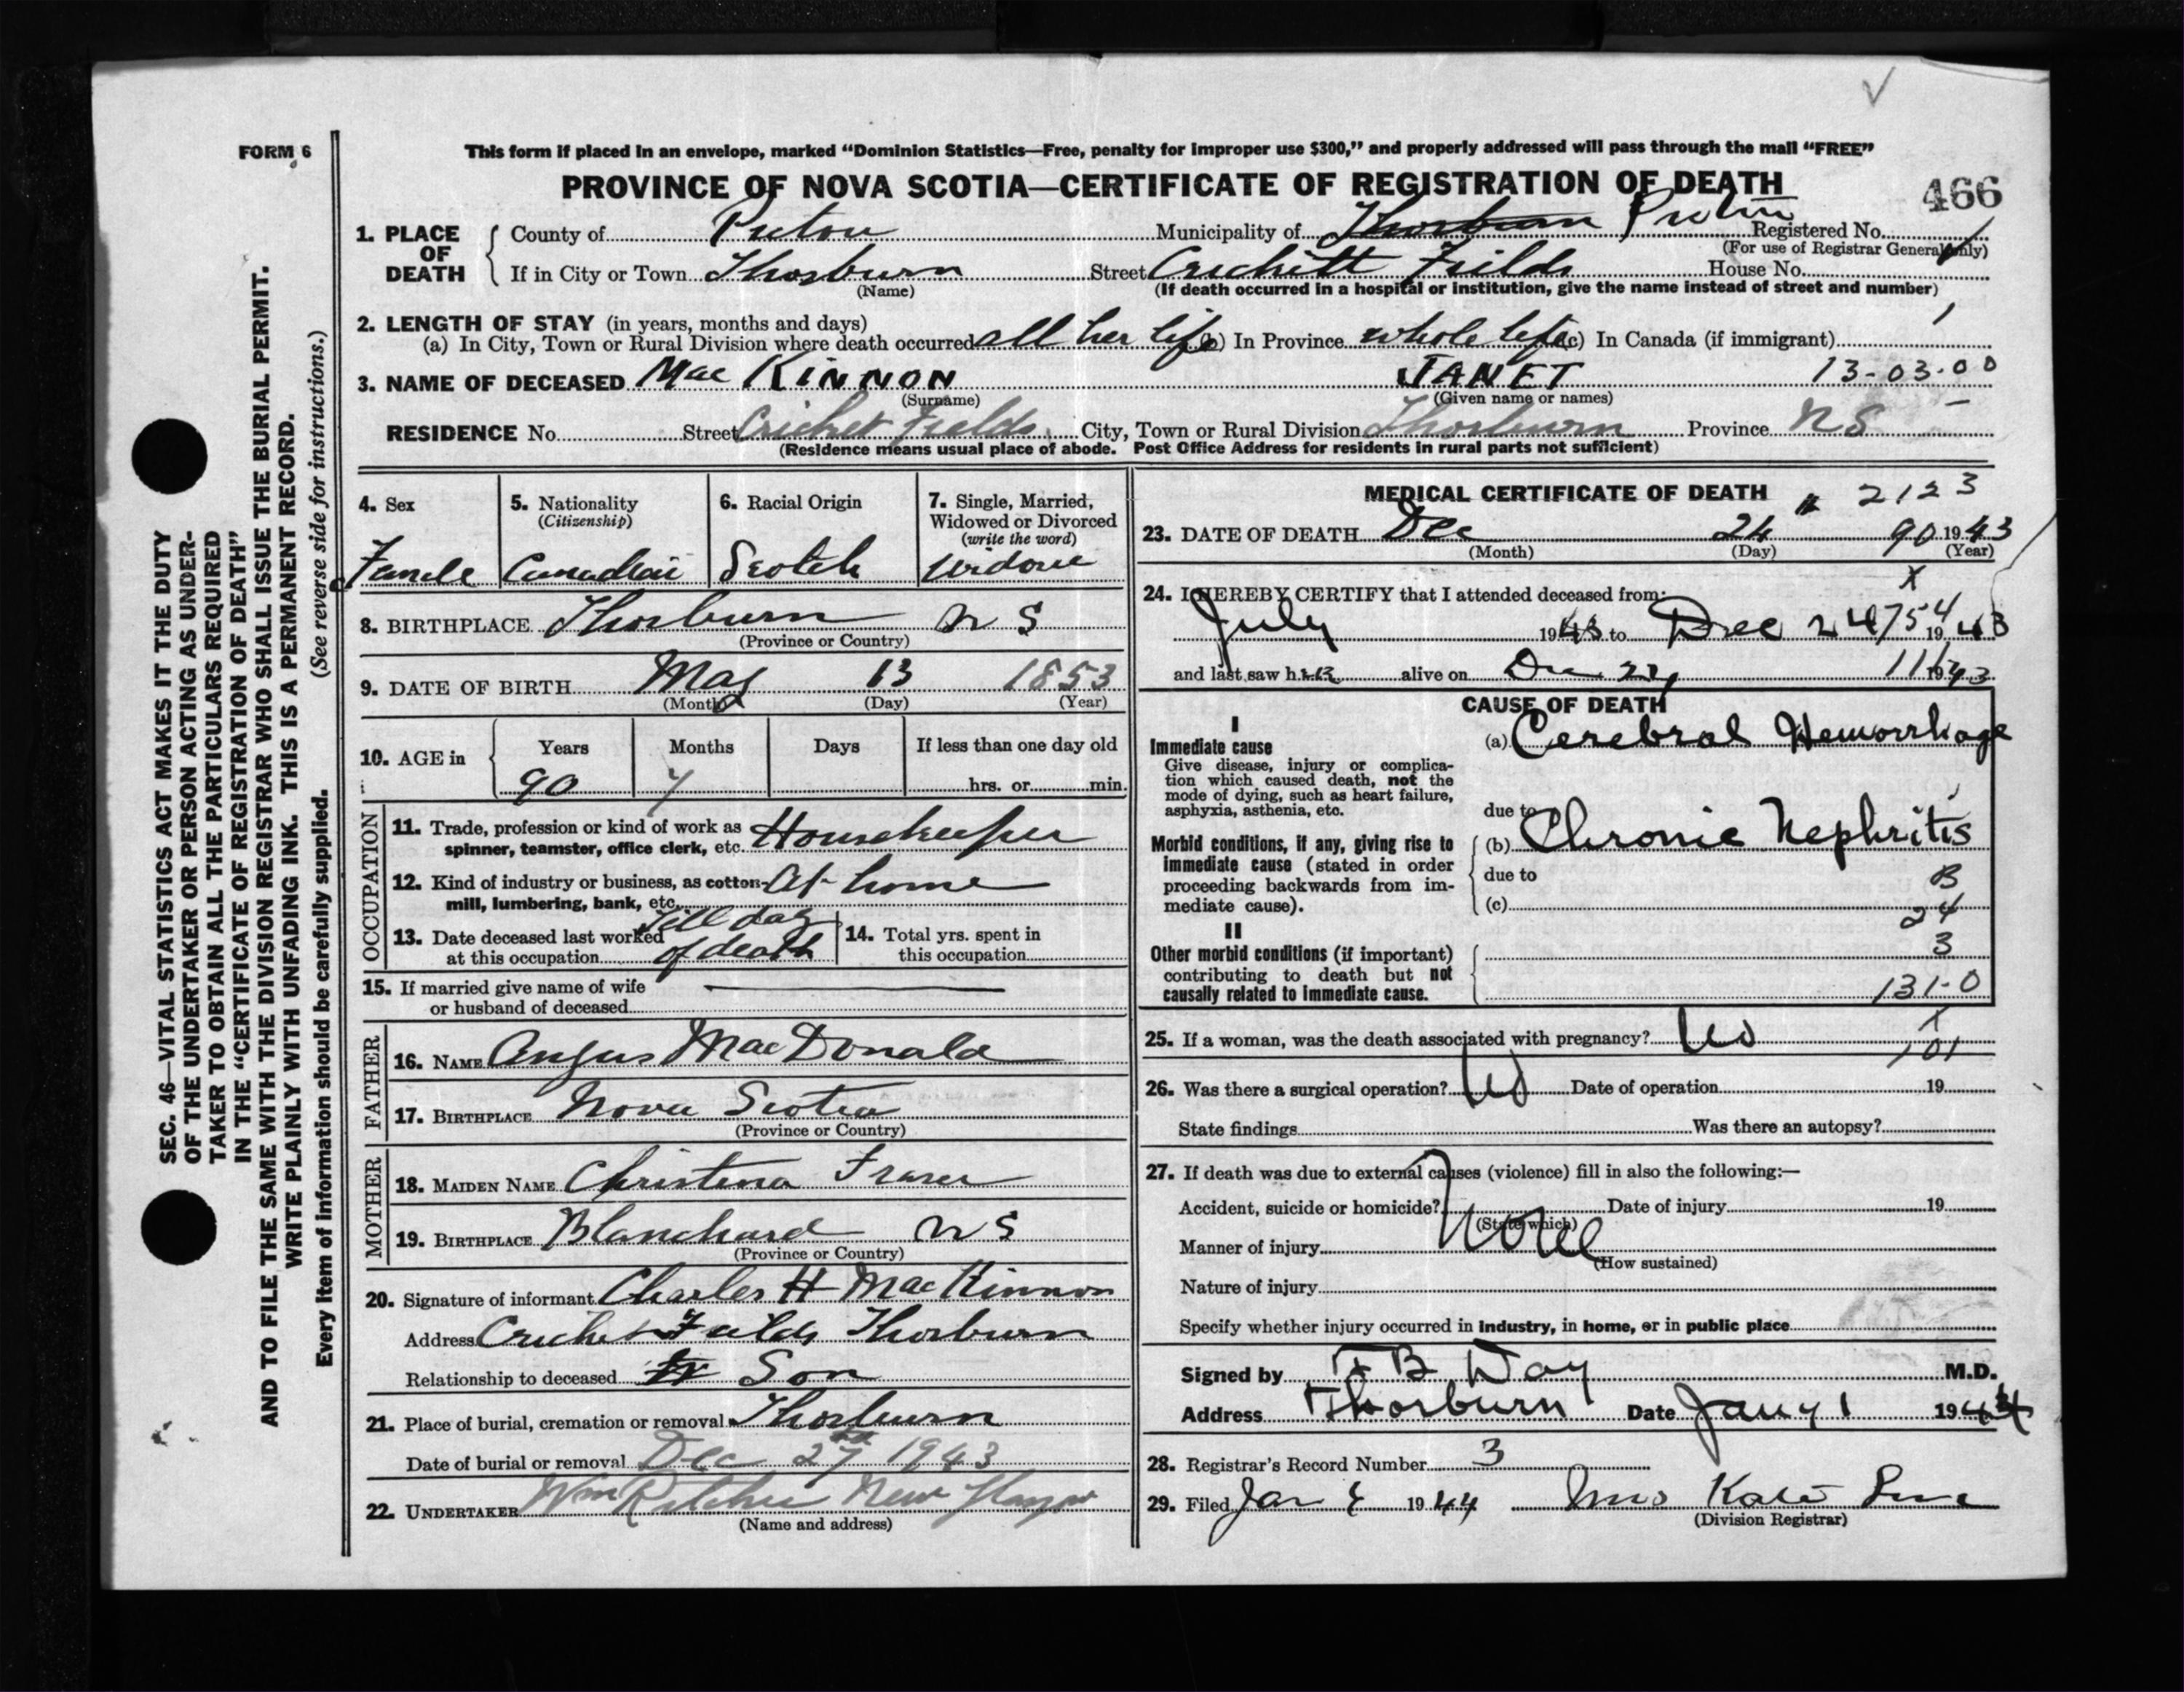 FORM 6
This form if placed in an envelope, marked “Dominion Statistics—Free, penalty for improper use $300,” and properly addressed will pass through the mail “FREE”
PROVINCE OF NOVA SCOTIA—CERTIFICATE OF REGISTRATION OF DEATH
466
1. PLACE OF DEATH
County of Pictou Municipality of Thorburn Pictou Registered No.
(For use of Registrar General only)
If in City or Town Thorburn Street Crickett Fields House No.
(Name) (If death occurred in a hospital or institution, give the name instead of street and number)
2. LENGTH OF STAY (in years, months and days)
(a) In City, Town or Rural Division where death occurred all her life (b) In Province whole life (c) In Canada (if immigrant)
3. NAME OF DECEASED Mac KINNON JANET 13-03-00
(Surname) (Given name or names)
RESIDENCE No. Street Cricket Fields City, Town or Rural Division Thorburn Province N S
(Residence means usual place of abode. Post Office Address for residents in rural parts not sufficient)
4. Sex
Female
5. Nationality
(Citizenship)
Canadian
6. Racial Origin
Scotch
7. Single, Married,
Widowed or Divorced
(write the word)
Widow
8. BIRTHPLACE Thorburn N S
(Province or Country)
9. DATE OF BIRTH May 13 1853
(Month) (Day) (Year)
10. AGE in
Years Months Days If less than one day old
90 7 hrs. or min.
OCCUPATION
11. Trade, profession or kind of work as
spinner, teamster, office clerk, etc. Housekeeper
12. Kind of industry or business, as cotton-
mill, lumbering, bank, etc. At home
13. Date deceased last worked
at this occupation till day of death
14. Total yrs. spent in
this occupation
15. If married give name of wife
or husband of deceased
FATHER
16. NAME Angus MacDonald
17. BIRTHPLACE Nova Scotia
(Province or Country)
MOTHER
18. MAIDEN NAME Christena Fraser
19. BIRTHPLACE Blanchard N S
(Province or Country)
20. Signature of informant Charles H MacKinnon
Address Cricket Fields Thorburn
Relationship to deceased Son
21. Place of burial, cremation or removal Thorburn
Date of burial or removal Dec 27 1943
22. UNDERTAKER Wm Ritchie New Glasgow
(Name and address)
MEDICAL CERTIFICATE OF DEATH 2123
23. DATE OF DEATH Dec 24 90 1943
(Month) (Day) (Year)
24. I HEREBY CERTIFY that I attended deceased from: X
July 1943 to Dec 24 754 1943
and last saw her alive on Dec 24 111 1943
CAUSE OF DEATH
I
Immediate cause
Give disease, injury or complica-
tion which caused death, not the
mode of dying, such as heart failure,
asphyxia, asthenia, etc.
(a) Cerebral Hemorrhage
due to
Morbid conditions, if any, giving rise to
immediate cause (stated in order
proceeding backwards from im-
mediate cause).
(b) Chronic Nephritis
due to B
(c) 24
II
Other morbid conditions (if important)
contributing to death but not
causally related to immediate cause.
3
131-0
25. If a woman, was the death associated with pregnancy? No X
101
26. Was there a surgical operation? No Date of operation 19
State findings Was there an autopsy?
27. If death was due to external causes (violence) fill in also the following:—
Accident, suicide or homicide? Date of injury 19
(State which)
Manner of injury None
(How sustained)
Nature of injury
Specify whether injury occurred in industry, in home, or in public place
Signed by F B Day M.D.
Address Thorburn Date Jany 1 1944
28. Registrar's Record Number 3
29. Filed Jan 1944 Mrs Kate
(Division Registrar)
SEC. 46—VITAL STATISTICS ACT MAKES IT THE DUTY
OF THE UNDERTAKER OR PERSON ACTING AS UNDER-
TAKER TO OBTAIN ALL THE PARTICULARS REQUIRED
IN THE “CERTIFICATE OF REGISTRATION OF DEATH”
AND TO FILE THE SAME WITH THE DIVISION REGISTRAR WHO SHALL ISSUE THE BURIAL PERMIT.
WRITE PLAINLY WITH UNFADING INK. THIS IS A PERMANENT RECORD.
Every item of information should be carefully supplied. (See reverse side for instructions.)